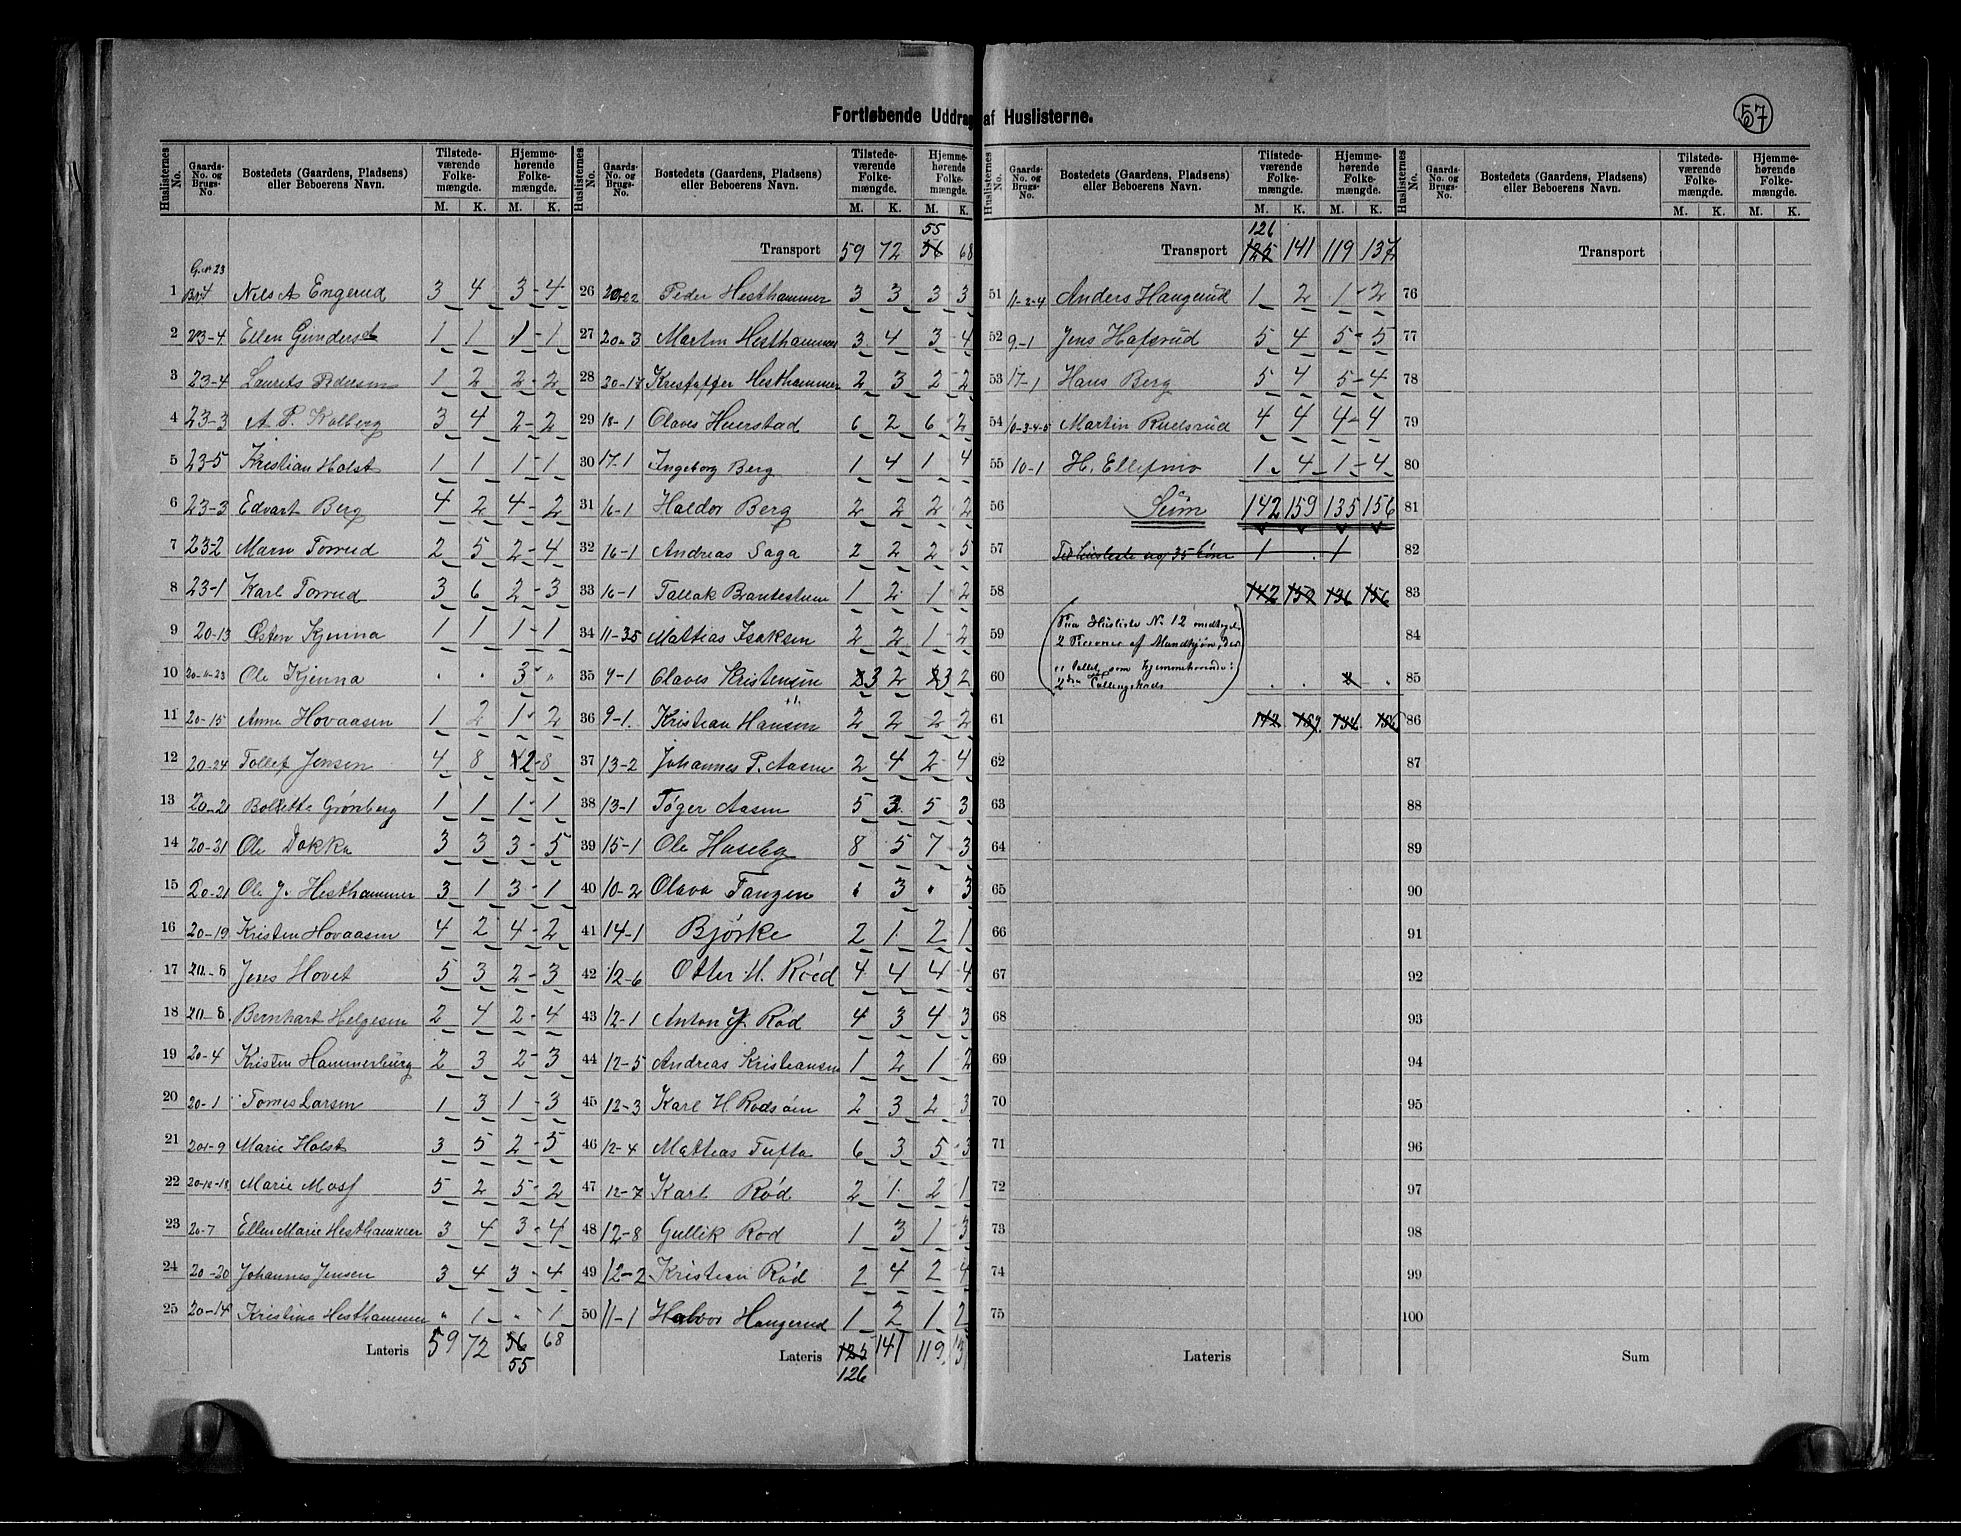 Fortløbende Uddrag af Huslisterne.
57
Huslisternes No. Gaards-No. og Brugs-No. Bostedets (Gaardens, Pladsens) eller Beboerens Navn. Tilstedeværende Folkemængde. Hjemmehørende Folkemængde.
M. K. M. K.
G. nr 23
1 Br 4 Nils A Engerud 3 4 3-4
2 23-4 Ellen Gunders 1 1 1-1
3 23-4 Laurits Pedersen 1 2 2-2
4 23-3 A P. Kolberg 3 4 2-2
5 23-5 Kristian Holst 1 1 1-1
6 23-3 Edvart Berg 4 2 4-2
7 23-2 Maru Torrud 2 5 2-4
8 23-1 Karl Torrud 3 6 2-3
9 20-13 Østen Kjenna 1 1 1-1
10 20-11-23 Ole Kjenna . . 3 "
11 20-15 Anne Hovaasen 1 2 1-2
12 20-24 Tollef Jensen 4 8 2-8
13 20-21 Bolette Grønberg 1 1 1-1
14 20-31 Ole Dokka 3 3 3-5
15 20-21 Ole J. Hesthammer 3 1 3-1
16 20-19 Kristen Hovaasen 4 2 4-2
17 20-8 Jens Hovet 5 3 2-3
18 20-8. Bernhart Helgesen 2 4 2-4
19 20-4 Kristen Hammerburg 2 3 2-3
20 20-1 Tomes Larsen 1 3 1-3
21 20-9 Marie Holst 3 5 2-5
22 20-12-18 Marie Moss 5 2 5-2
23 20-7 Ellen Marie Hesthammer 3 4 3-4
24 20-20 Johannes Jensen 3 4 3-4
25 20-14 Kristine Hesthammer " 1 " 1
Lateris 59 72 56 68
55
Huslisternes No. Gaards-No. og Brugs-No. Bostedets (Gaardens, Pladsens) eller Beboerens Navn. Tilstedeværende Folkemængde. Hjemmehørende Folkemængde.
M. K. M. K.
55
Transport 59 72 56 68
26 20-22 Peder Hesthammer 3 3 3 3
27 20-3 Martin Hesthammer 3 4 3-4
28 20-17 Kristoffer Hesthammer 2 3 2-2
29 18-1 Olaves Huerstad 6 2 6 2
30 17-1 Ingeborg Berg 1 4 1 4
31 16-1 Haldor Berg 2 2 2 2
32 16-1 Andreas Saga 2 2 2 5
33 16-1 Tallak Brautestuen 1 2 1 2
34 11-35 Mattias Isaksen 2 2 1-2
35 9-1 Olaves Kristensen 3 2 3 2
36 9-1. Kristian Hansen 2 2 2-2
37 13-2 Johannes P. Aasen 2 4 2-4
38 13-1 Tøger Aasen 5 3 5 3
39 15-1 Ole Haseby 8 5 7-3
40 10-2 Olava Tangen . 3 . 3
41 14-1 Bjørke 2 1 2 1
42 12-6 Otter H. Röed 4 4 4-4
43 12-1 Anton J Rod 4 3 4 3
44 12-5 Andreas Kristiansen 1 2 1 2
45 12-3 Karl H Rodsøen 2 3 2 3
46 12-4 Mattias Tufta 6 3 5-3
47 12-7 Karl Röd 2 1 2 1
48 12-8 Gullik Rod 1 3 1-3
49 12-2 Kristian Röd 2 4 2 4
50 11-1 Halvor Haugerud 1 2 1 2
Lateris 125 141 119 13
126
Huslisternes No. Gaards-No. og Brugs-No. Bostedets (Gaardens, Pladsens) eller Beboerens Navn. Tilstedeværende Folkemængde. Hjemmehørende Folkemængde.
M. K. M. K.
126
Transport 125 141 119 137
51 11-2-4 Anders Haugerud 1 2 1-2
52 9-1 Jens Hafsrud 5 4 5-5
53 17-1 Hans Berg 5 4 5-4
54 10-3-4-5 Martin Rudsrud 4 4 4-4
55 10-1 H. Ellefmo 1 4 1-4
56 Sum 142 159 135 156
57 Til Husliste no 35 1 . 1
58 142 159 136 156
59 (Fra Husliste No. 12 medtaget
2 Personer af Mandkjøn, der
60 som hjemmehørende: Tællingskreds) . . 2 .
61 142 159 134 156
62
63
64
65
66
67
68
69
70
71
72
73
74
75
Lateris
Huslisternes No. Gaards-No. og Brugs-No. Bostedets (Gaardens, Pladsens) eller Beboerens Navn. Tilstedeværende Folkemængde. Hjemmehørende Folkemængde.
M. K. M. K.
Transport
76
77
78
79
80
81
82
83
84
85
86
87
88
89
90
91
92
93
94
95
96
97
98
99
100
Sum